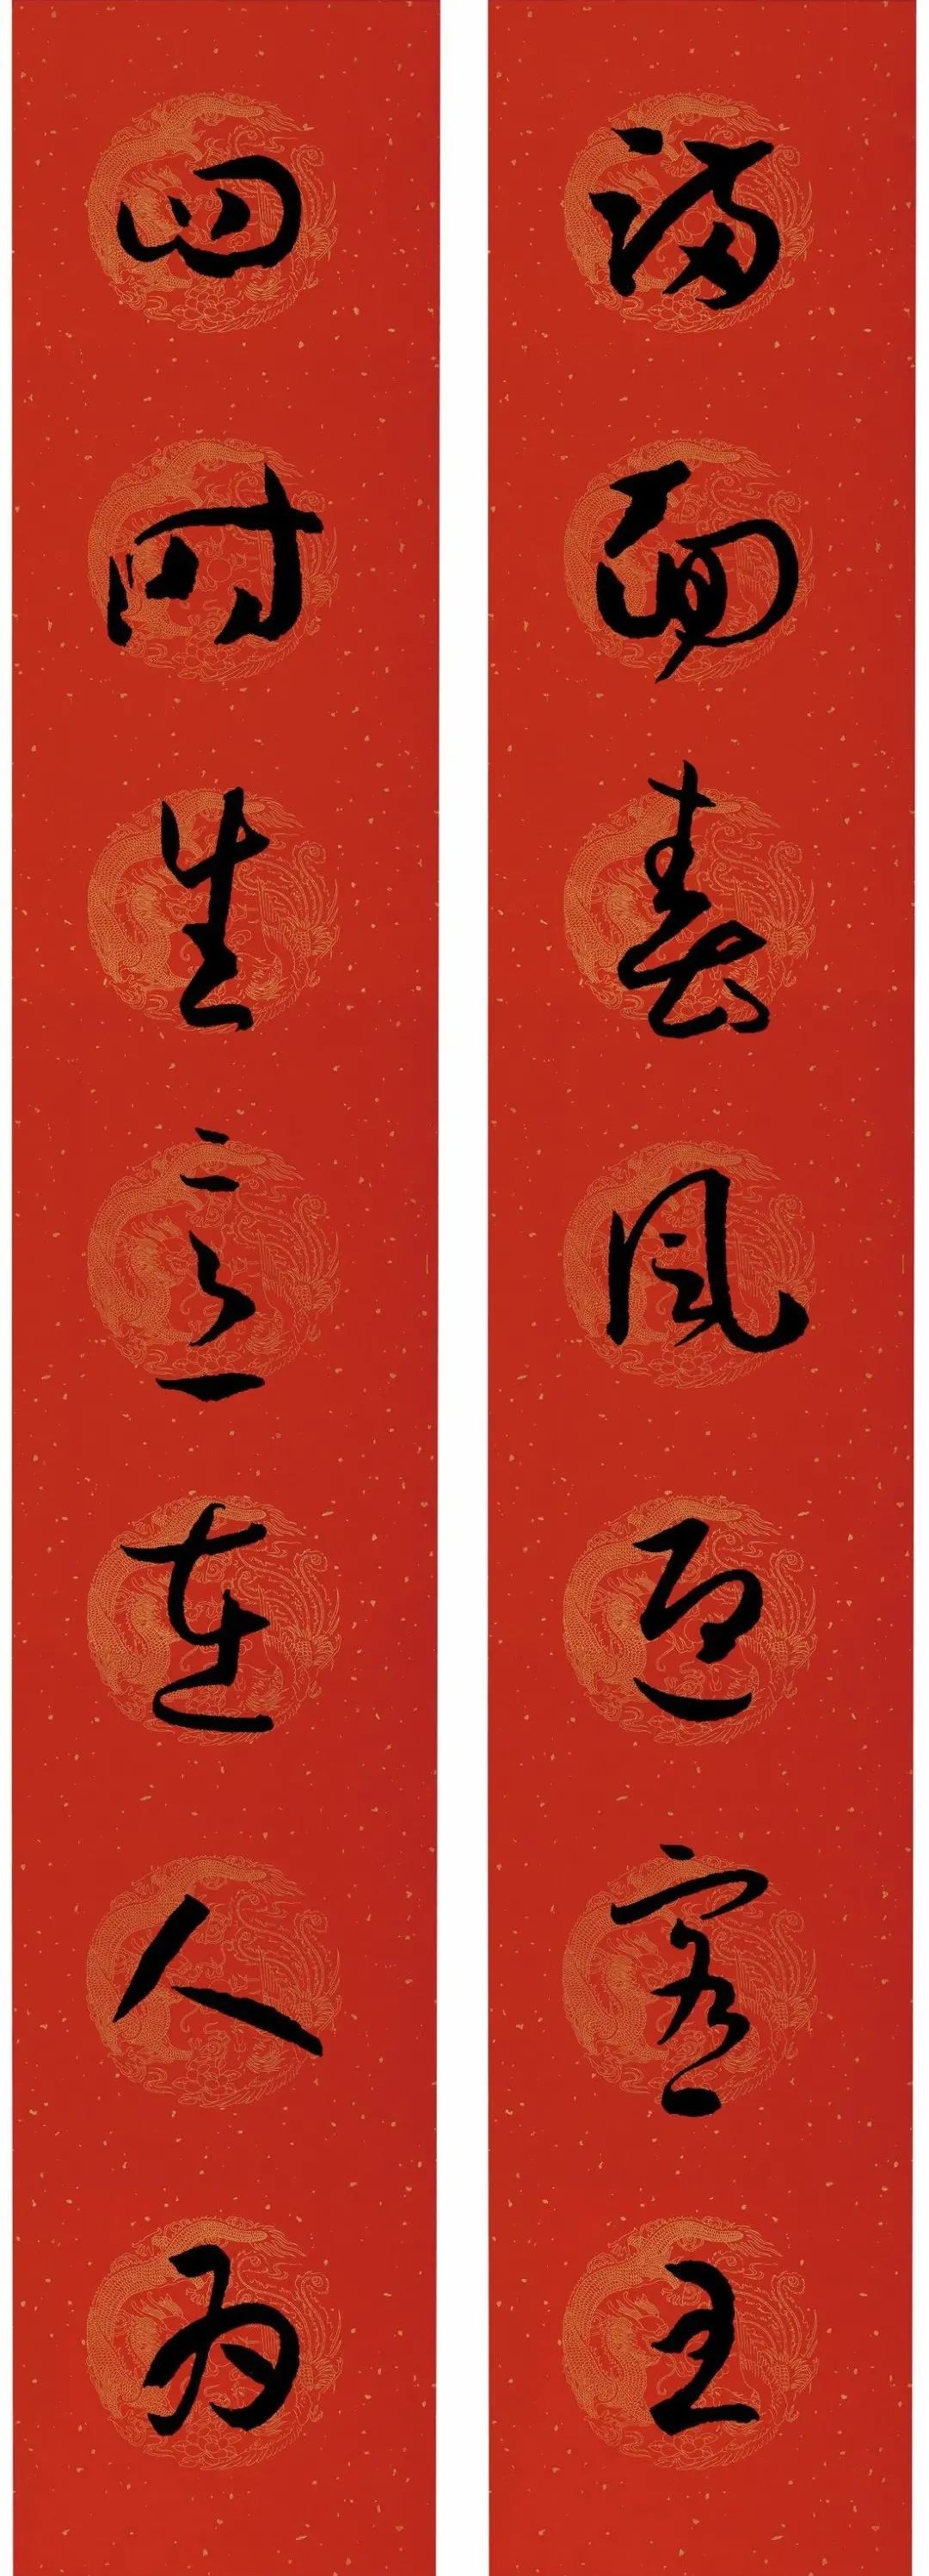 滿面春風迎客至
四時生意在人為